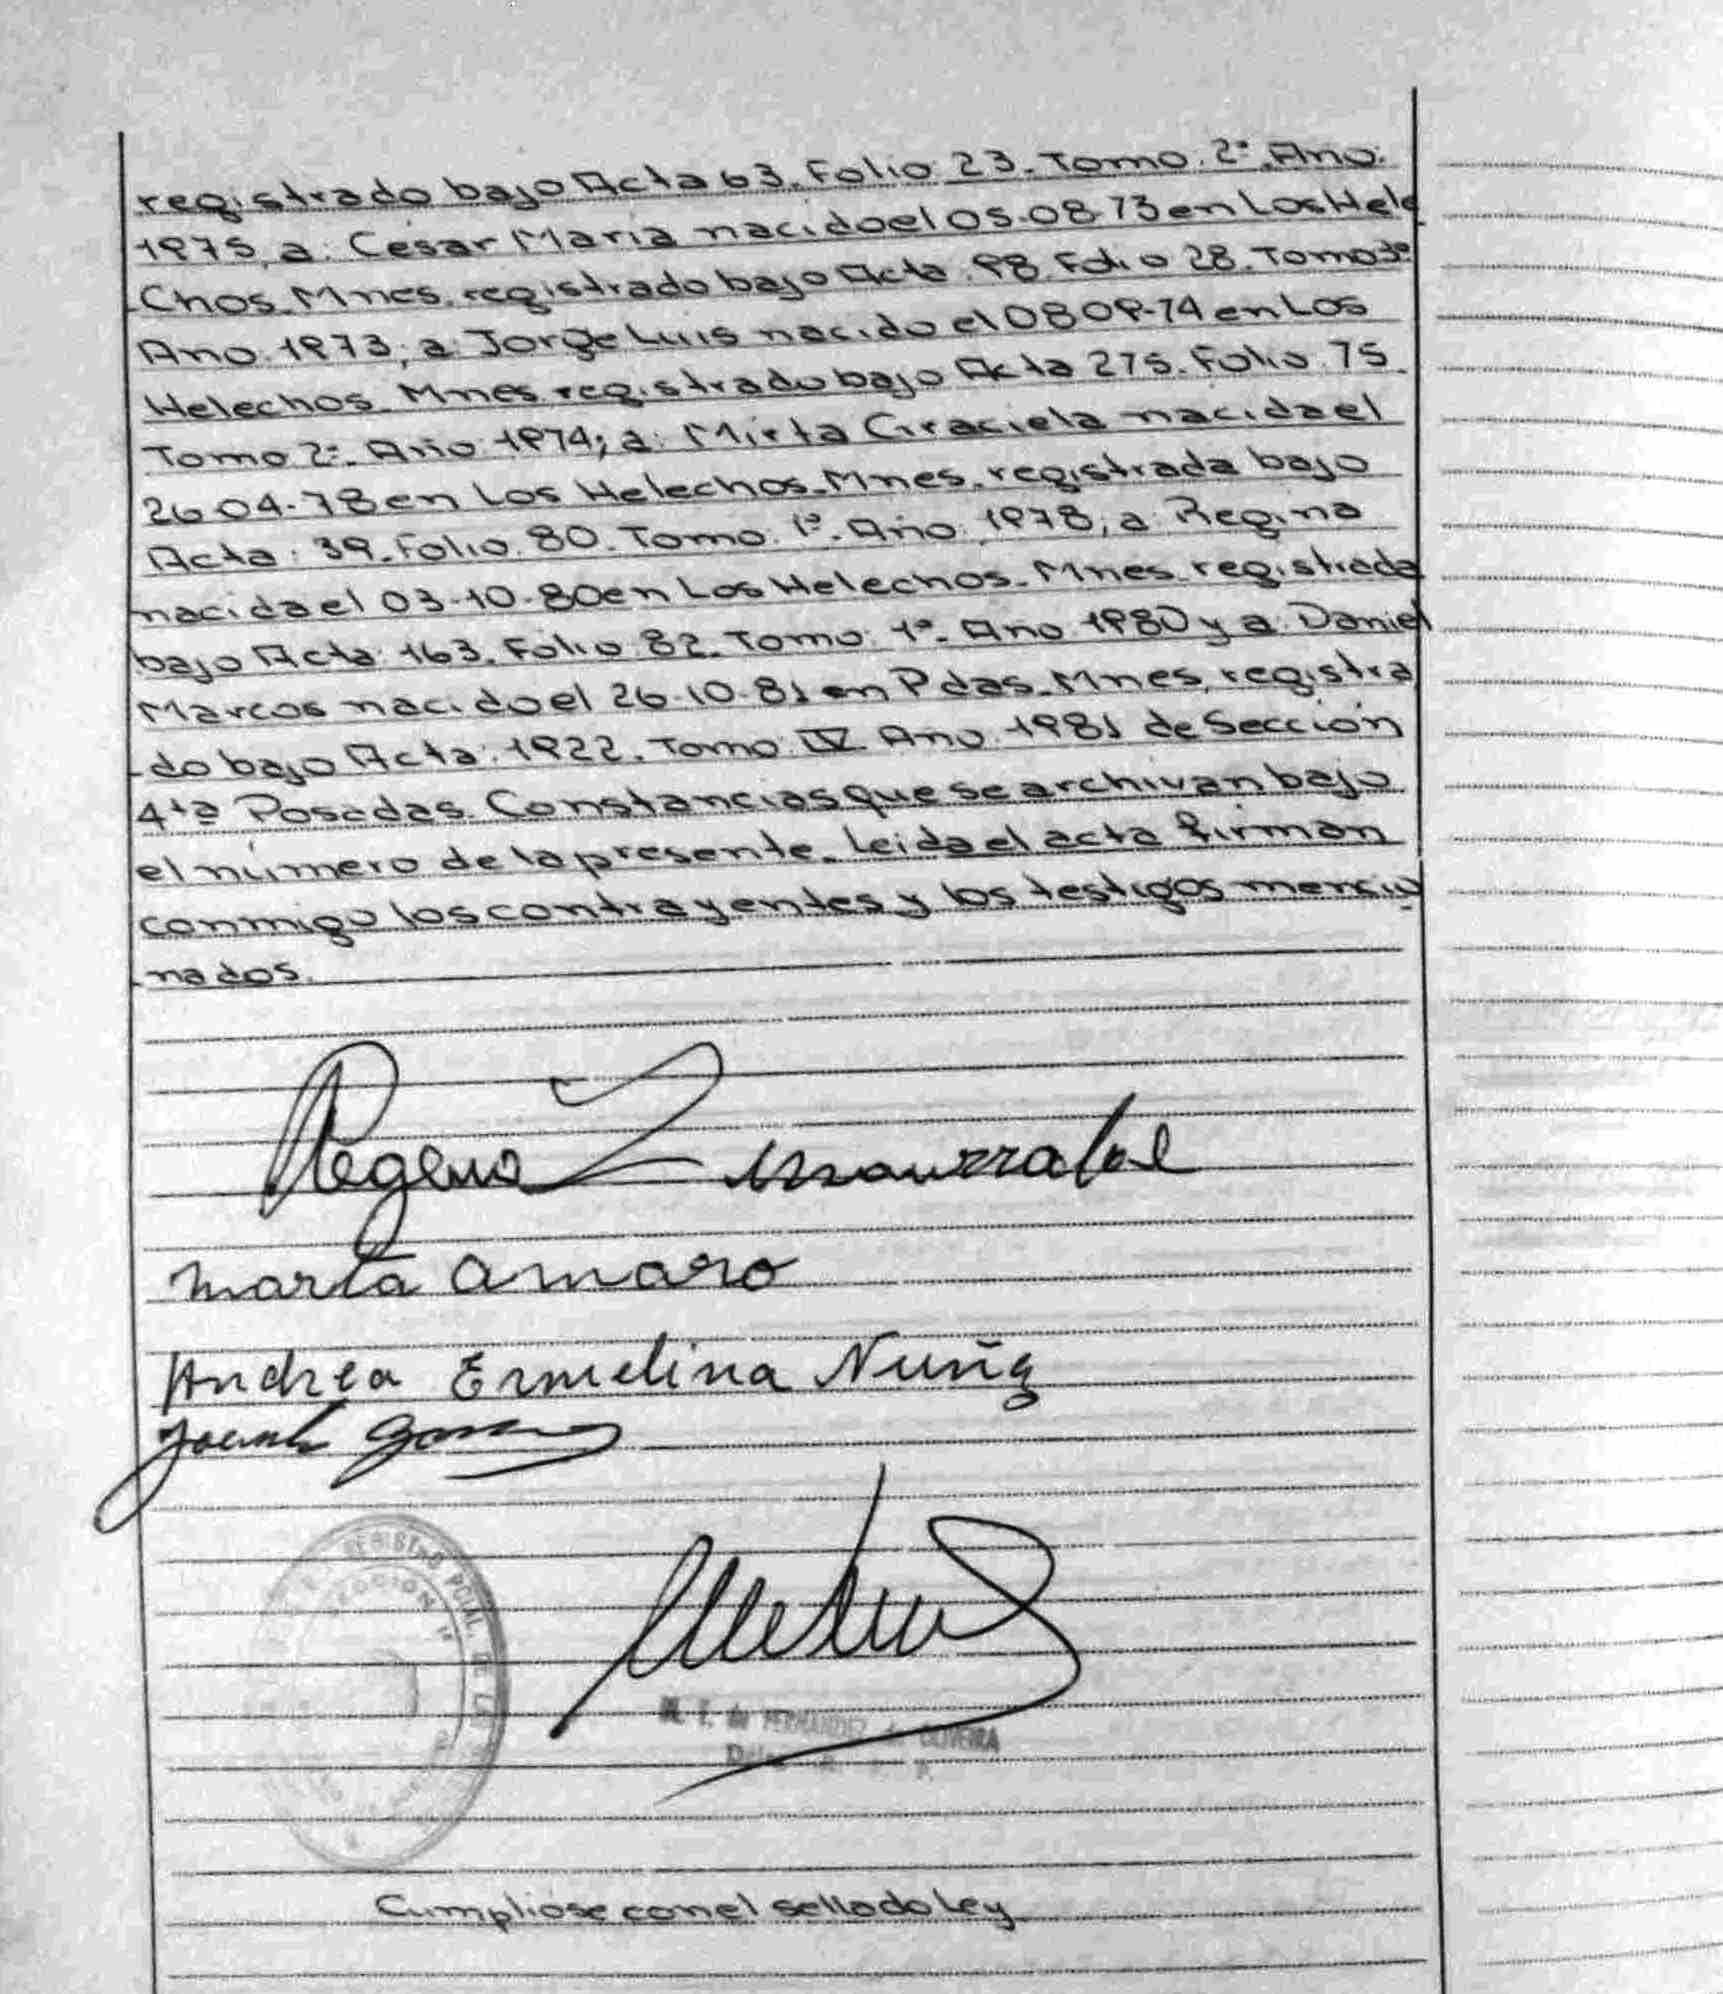 registrado bajo Acta 63. Folio 23. Tomo. 2º. Año:
1975, a: César Maria nacido el 05-08-73 en Los Hele
-Chos. Mnes. registrado bajo Acta 98 Folio 28. Tomo 3º
Año. 1973; a: Jorge Luis nacido el 08 09-74 en Los
Helechos. Mnes. registrado bajo Acta 275. Folio. 75.
Tomo 2º. Año 1974; a: Mirta Graciela nacida el
26-04-78 en Los Helechos. Mnes. registrada bajo
Acta: 39. Folio. 80. Tomo: 1º. Año: 1978; a: Regina
nacida el 03-10-80 en Los Helechos. Mnes. registrada
bajo Acta: 163. Folio 82. Tomo: 1º. Año 1980 y a: Daniel
Marcos nacido el 26-10-81 en Pdas. Mnes, registra
-do bajo Acta: 1922. Tomo: IV Año 1981 de Sección
4ta Posadas. Constancias que se archivan bajo
el número de la presente. Leida el acta firman
conmigo los contrayentes y los testigos mencio
-nados.
marta amaro
Andrea Ermelina Nuñ
REGISTRO PCIAL. DE LA
SECCION
M. E. de FERNANDEZ de OLIVEIRA
Cumpliose con el sellado Ley